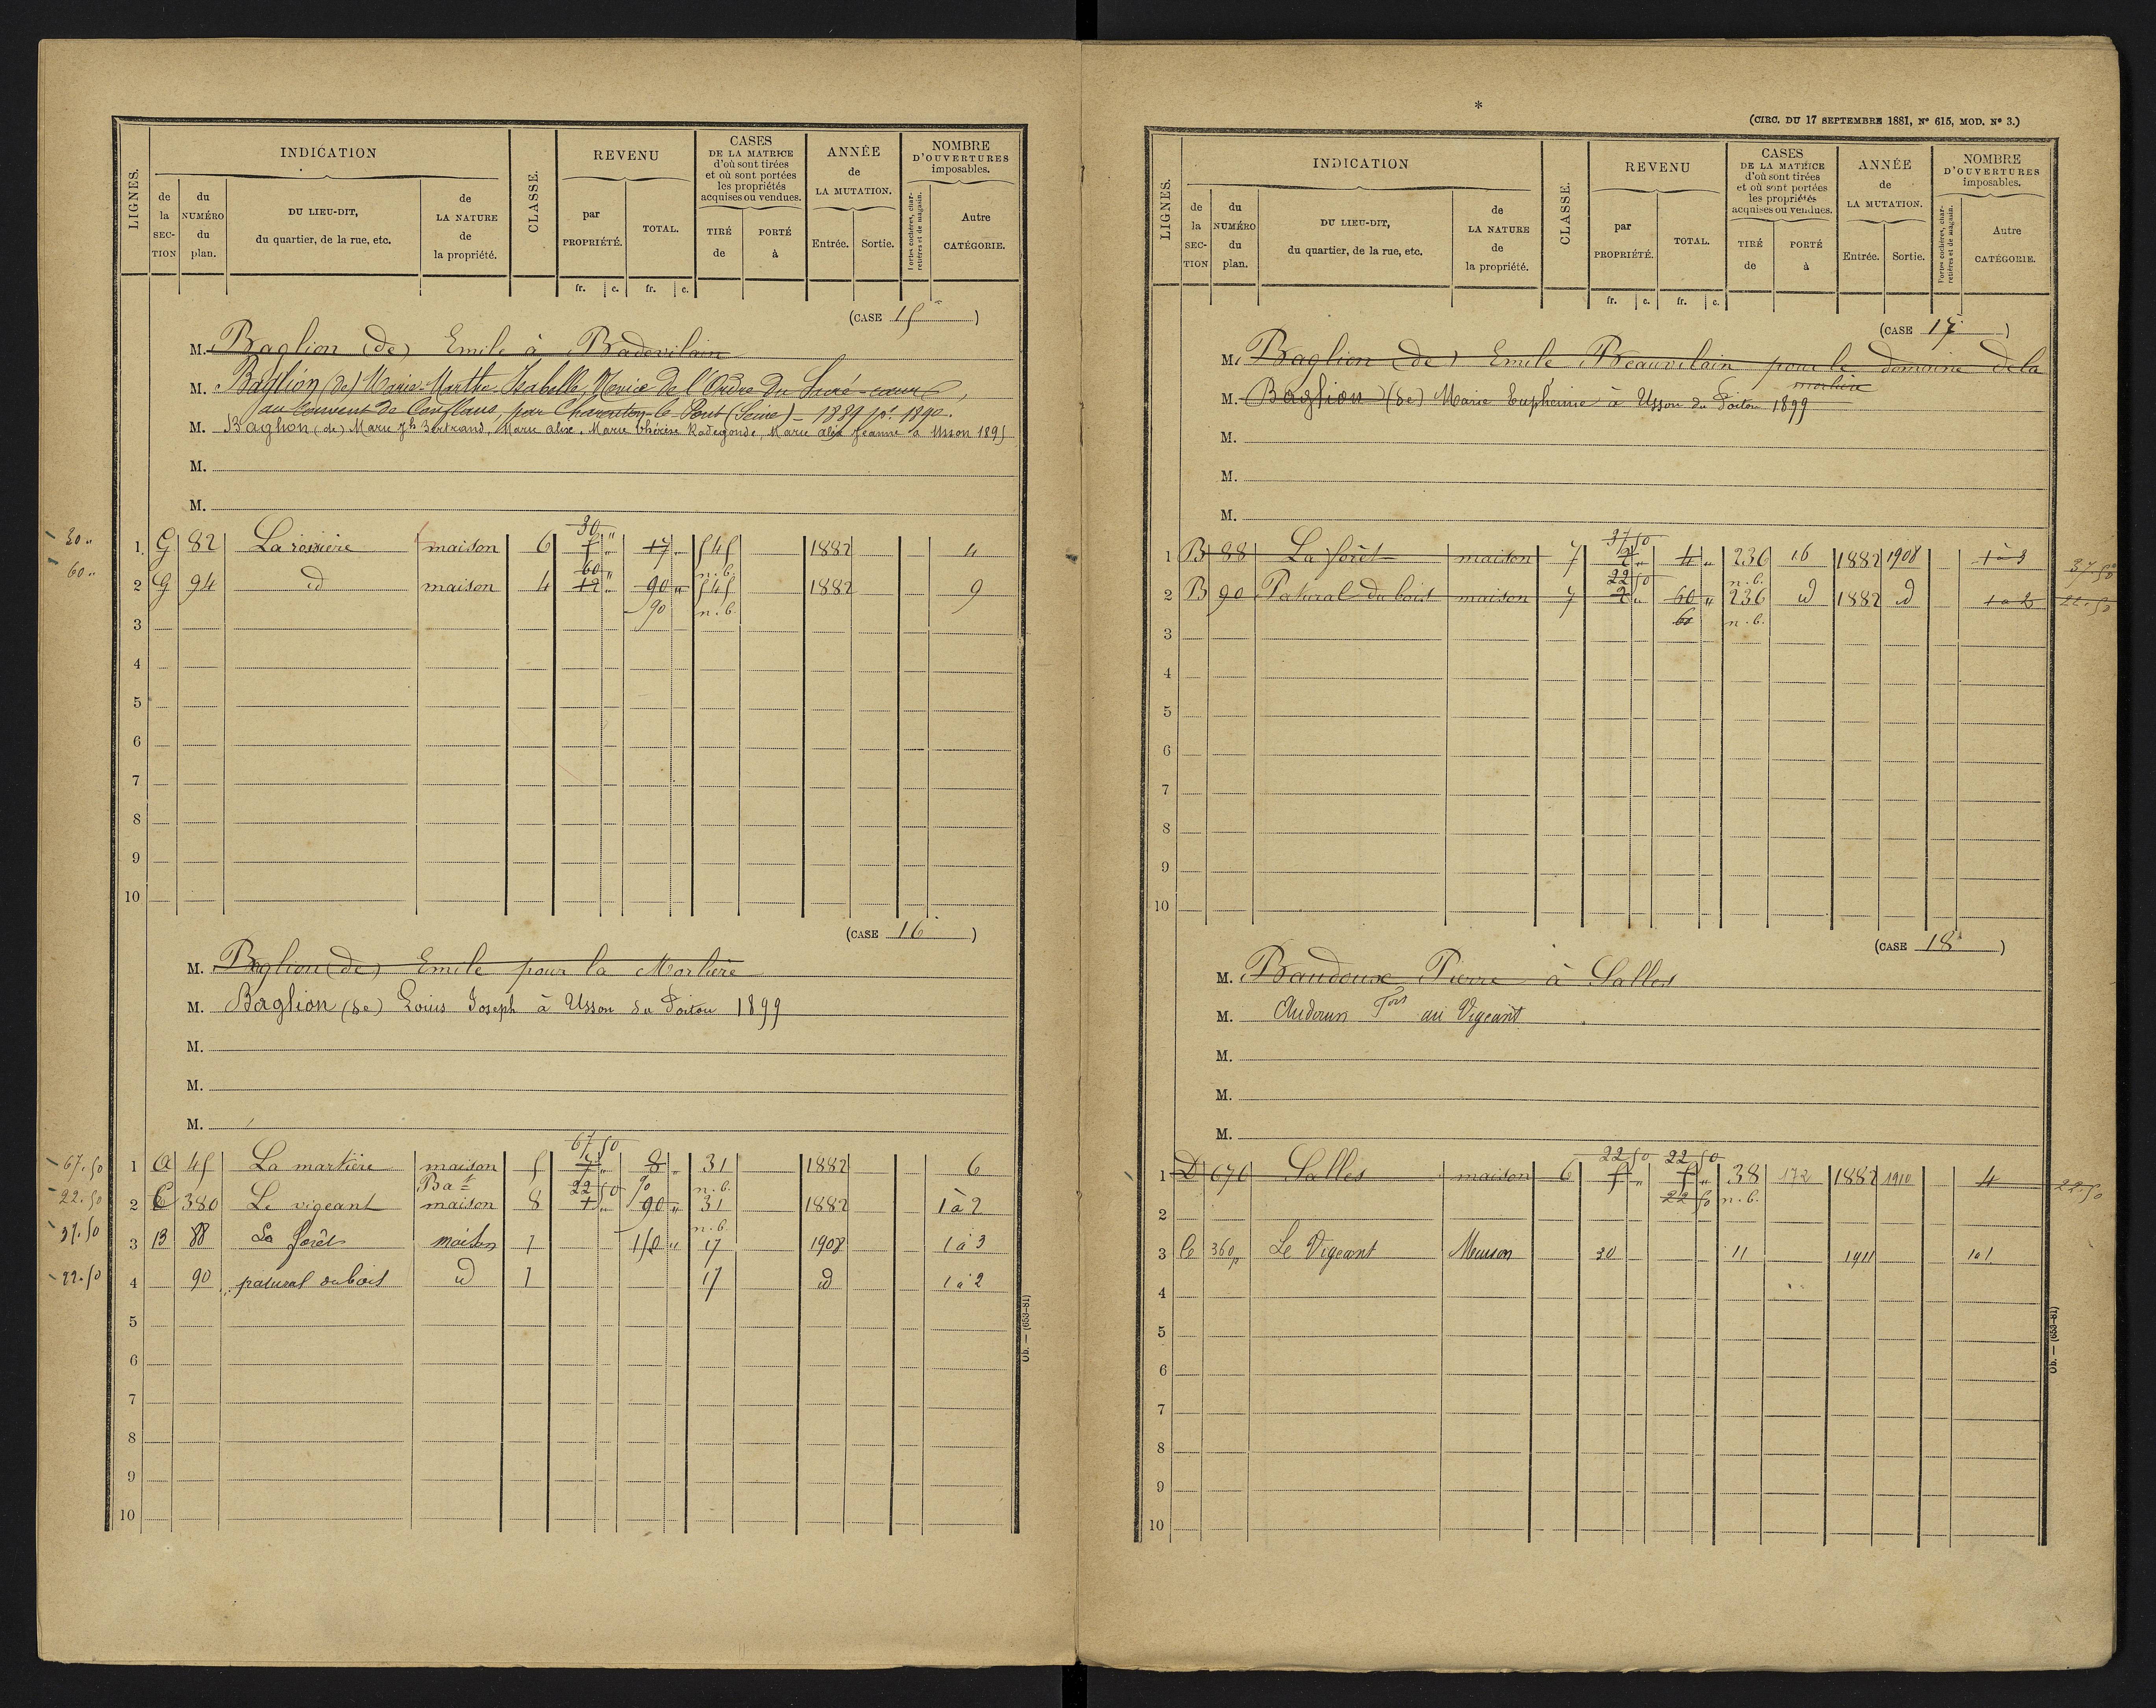 LIGNES.
INDICATION
de la SECTION
du NUMÉRO du plan.
DU LIEU-DIT, du quartier, de la rue, etc.
de LA NATURE de la propriété.
CLASSE.
REVENU
par PROPRIÉTÉ.
TOTAL.
CASES DE LA MATRICE d'où sont tirées et où sont portées les propriétés acquises ou vendues.
TIRÉ de
PORTÉ à
ANNÉE de LA MUTATION.
Entrée.
Sortie.
NOMBRE D'OUVERTURES imposables.
Portes cochères, charretières et de magasin.
Autre CATÉGORIE.
fr. c. fr. c.
(CASE 15)
M. Baglion (de) Emile à
M. Baglion (de) Marie-Marthe-Isabelle, Novice de l'Ordre du Sacré-cœur,
au Couvent de Conflans, par Charenton-le-Pont (Seine) - 1889 pr 1890.
M. Baglion (de) Marie Jh Bertrand, Marie Alix, Marie Thérèse Radegonde, Marie Jeanne à Usson 1895
M.
M.
30 "
1 G 82 maison 6 5 " 17 " 545 1882 4
60 " n.b.
2 G 94 id maison 4 12 " 90 " 545 1882 9
3 90 n.b.
4
5
6
7
8
9
10
30 "
60 "
(CASE 16)
M. Baglion (de) Emile pour la Morlière
M. Baglion (de) Louis Joseph à Usson du Poitou 1899
M.
M.
M.
67 50
1 A 45 La martière maison 5 7 " 8 " 31 1882 6
Bat 22 50 90 n.b.
2 C 380 Le vigeant maison 8 1 " 90 " 31 1882 1 à 2
n.b.
3 B 88 La forêt maison 7 150 " 17 1908 1 à 3
4 90 patural du bois id 7 17 id 1 à 2
5
6
7
8
9
10
67.50
22.50
37.50
22.50
Ob. — (653-81)
*
(CIRC. DU 17 SEPTEMBRE 1881, N° 615, MOD. N° 3.)
LIGNES.
INDICATION
de la SECTION
du NUMÉRO du plan.
DU LIEU-DIT, du quartier, de la rue, etc.
de LA NATURE de la propriété.
CLASSE.
REVENU
par PROPRIÉTÉ.
TOTAL.
CASES DE LA MATRICE d'où sont tirées et où sont portées les propriétés acquises ou vendues.
TIRÉ de
PORTÉ à
ANNÉE de LA MUTATION.
Entrée.
Sortie.
NOMBRE D'OUVERTURES imposables.
Portes cochères, charretières et de magasin.
Autre CATÉGORIE.
fr. c. fr. c.
(CASE 17)
M. Baglion (de) Emile Beauvilain pour le domaine de la
morlière
M. Baglion (de) Marie Euphémie à Usson du Poitou 1899
M.
M.
M.
37 50
1 B 88 La forêt maison 7 2 " 4 " 236 16 1882 1908 1 à 3 37.50
22 50 n.b.
2 B 90 Patural du bois maison 7 2 " 60 " 236 id 1882 id 1 à 2 22.50
3 60 n.b.
4
5
6
7
8
9
10
(CASE 18)
M. Baudoux Pierre à Salles
M. Fois au Vigeant
M.
M.
M.
22 50 22 50
1 D 676 Salles maison 6 5 " 5 " 38 172 1882 1910 4 22.50
22 50 n.b.
2
3 C 360p Le Vigeant Maison 30 11 1911 1 à 1
4
5
6
7
8
9
10
Ob. — (653-81)